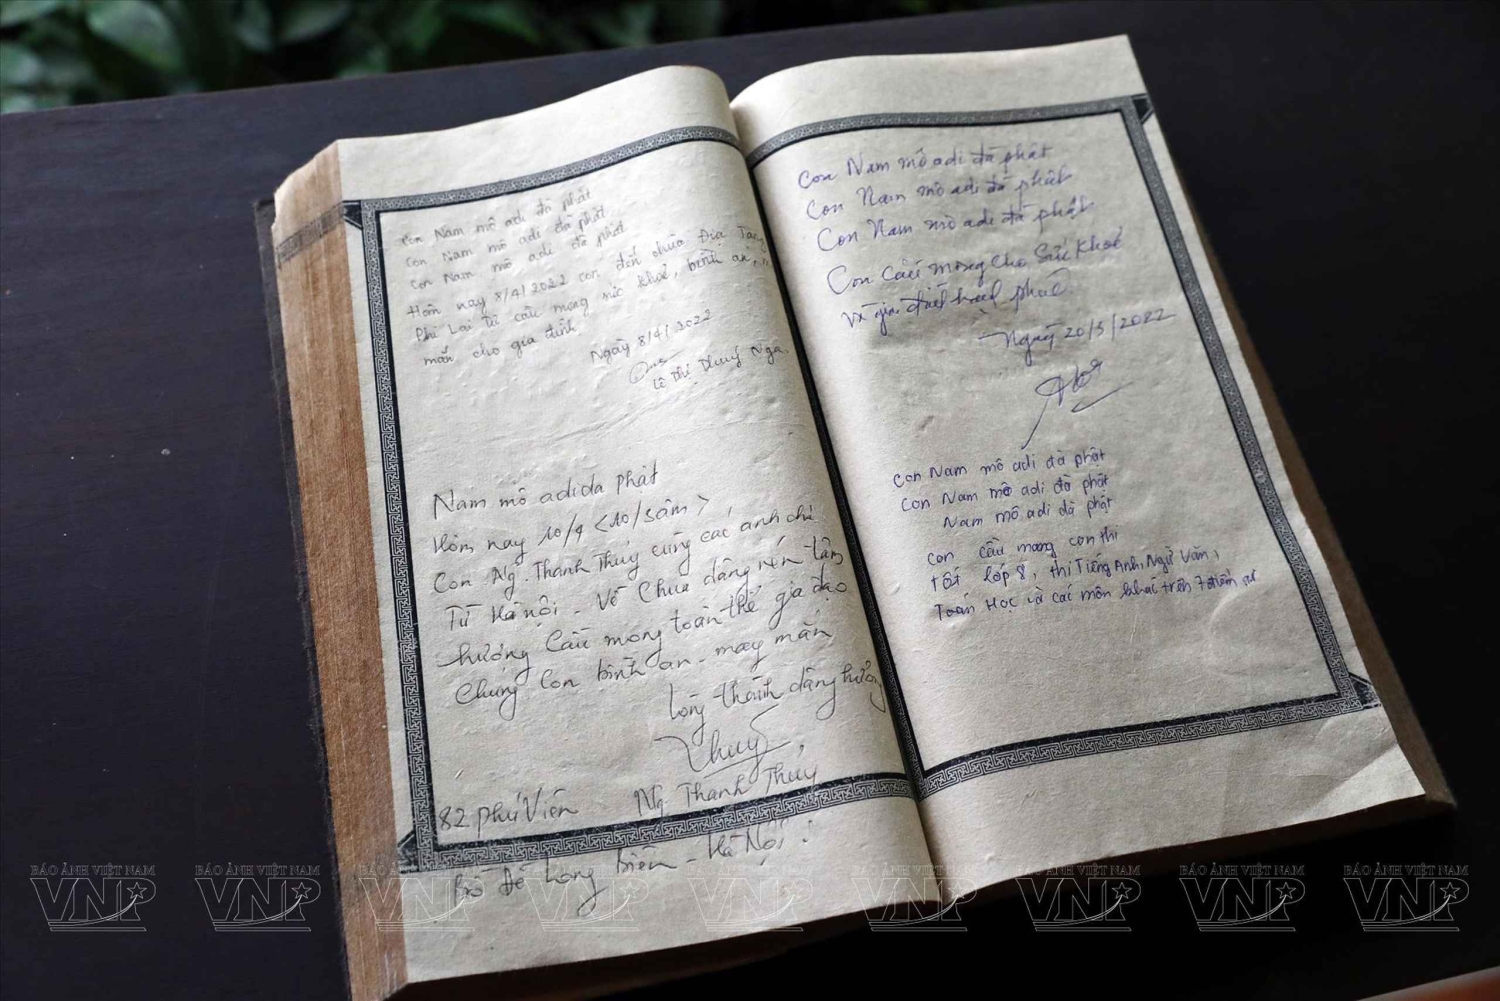 Con Nam mô adi đà phật
Con Nam mô adi đà phật
Con Nam mô adi đà phật
Hôm nay 8/4/2022 con đến chùa Địa Tạng
Phi Lai tự cầu mong sức khoẻ, bình an,
mắn cho gia đình
Ngày 8/4/2022
Lê Thị Thuý Nga
Nam mô adida phật
Hôm nay 10/4
Con Ng. Thanh Thủy cùng các anh chị
Từ Hà Nội - Về Chùa dâng nén tâm
hương Cầu mong toàn thể gia đạo
Chúng Con bình an - may mắn
Lòng thành dâng hương
Thuy
Ng Thanh Thủy
82 phú Viên
Bồ Đề Long biên - Hà Nội
Con Nam mô adi đà phật
Con Nam mô adi đà phật
Con Nam mô adi đà phật
Con Cầu mong cho Sức Khoẻ
và gia đình hạnh phúc
Ngày 20/3/2022
Con Nam mô adi đà phật
Con Nam mô adi đà phật
Nam mô adi đà phật
con cầu mong con thi
tốt lớp 8, thi Tiếng Anh, Ngữ Văn,
Toán Học và các môn khác trên 7 điểm
BÁO ẢNH VIỆT NAM
VNP
BÁO ẢNH VIỆT NAM
VNP
BÁO ẢNH VIỆT NAM
VNP
BÁO ẢNH VIỆT NAM
VNP
BÁO ẢNH VIỆT NAM
VNP
BÁO ẢNH VIỆT NAM
VNP
BÁO ẢNH VIỆT NAM
VNP
BÁO ẢNH VIỆT NAM
VNP
BÁO ẢNH VIỆT NAM
VNP